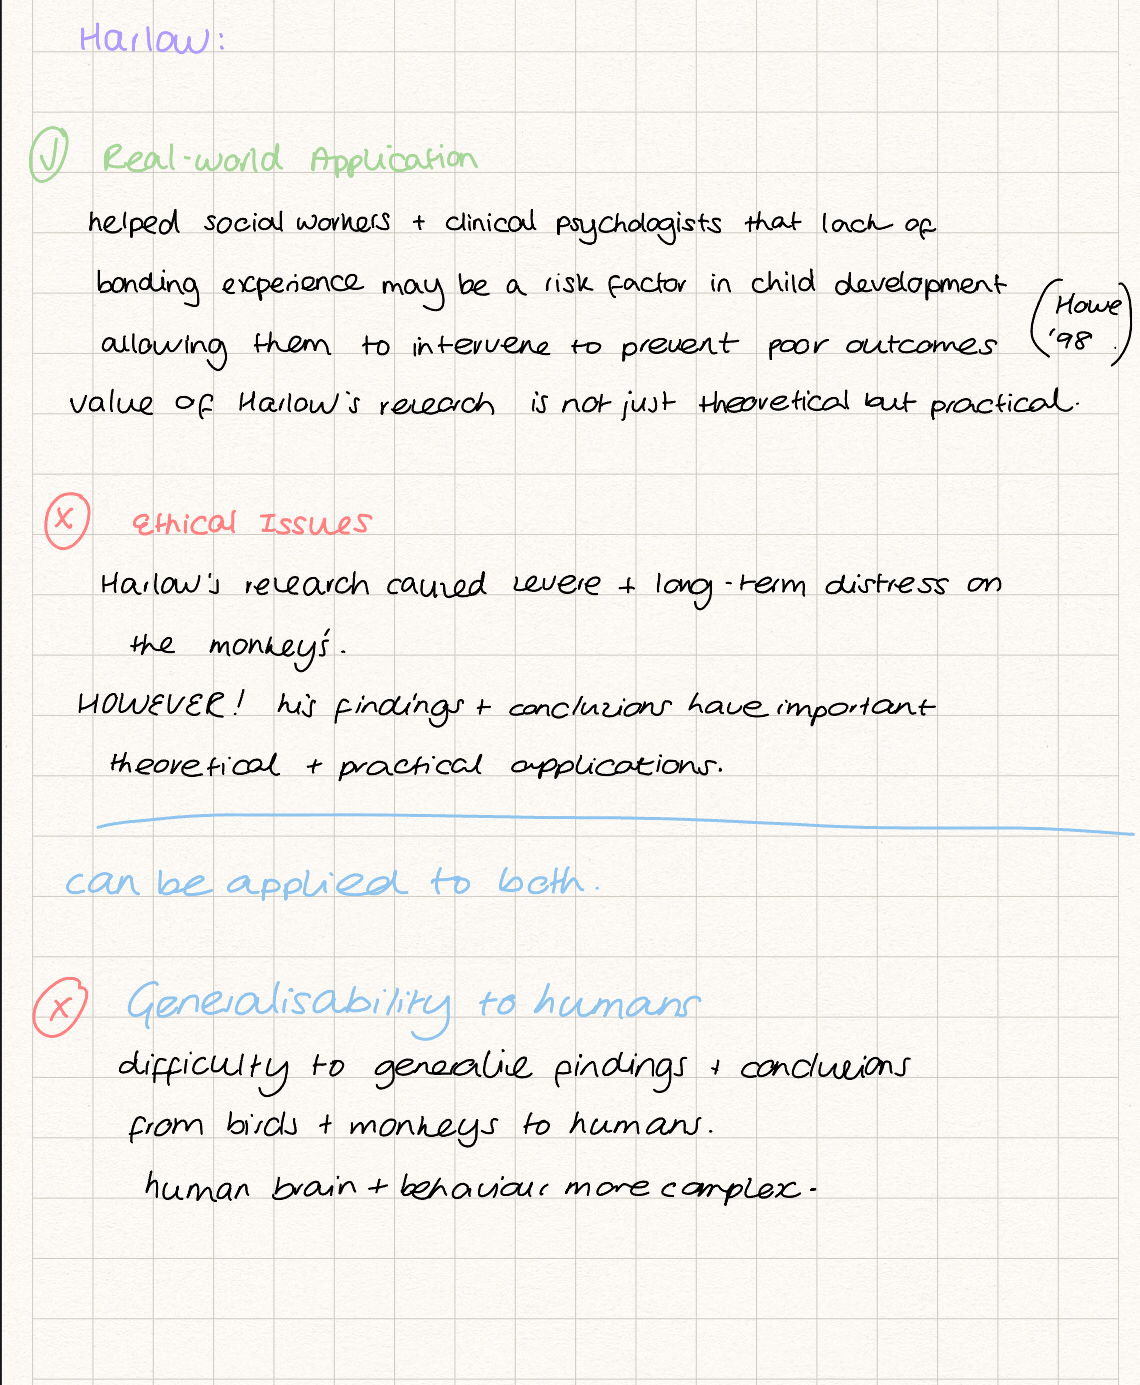 Harlow:
✓ Real-world Application
helped social workers + clinical psychologists that lack of
bonding experience may be a risk factor in child development
(Howe '98.)
allowing them to intervene to prevent poor outcomes
value of Harlow's research is not just theoretical but practical.
x Ethical Issues
Harlow's research caused severe + long-term distress on
the monkey's.
HOWEVER! his findings + conclusions have important
theoretical + practical applications.
can be applied to both.
x Generalisability to humans
difficulty to generalise findings + conclusions
from birds + monkeys to humans.
human brain + behaviour more complex.